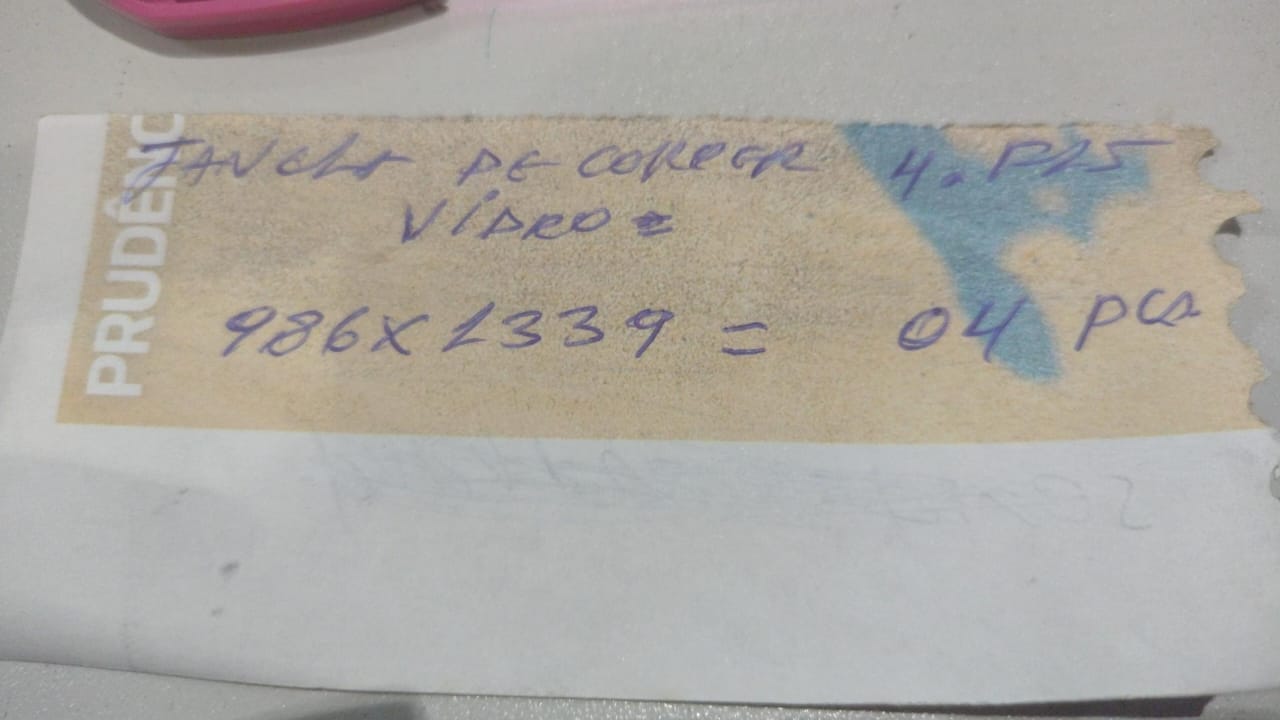 PRUDÊNC
JANELA DE CORRER 4. FLS
VÍDRO=
986X1339 = 04 pça